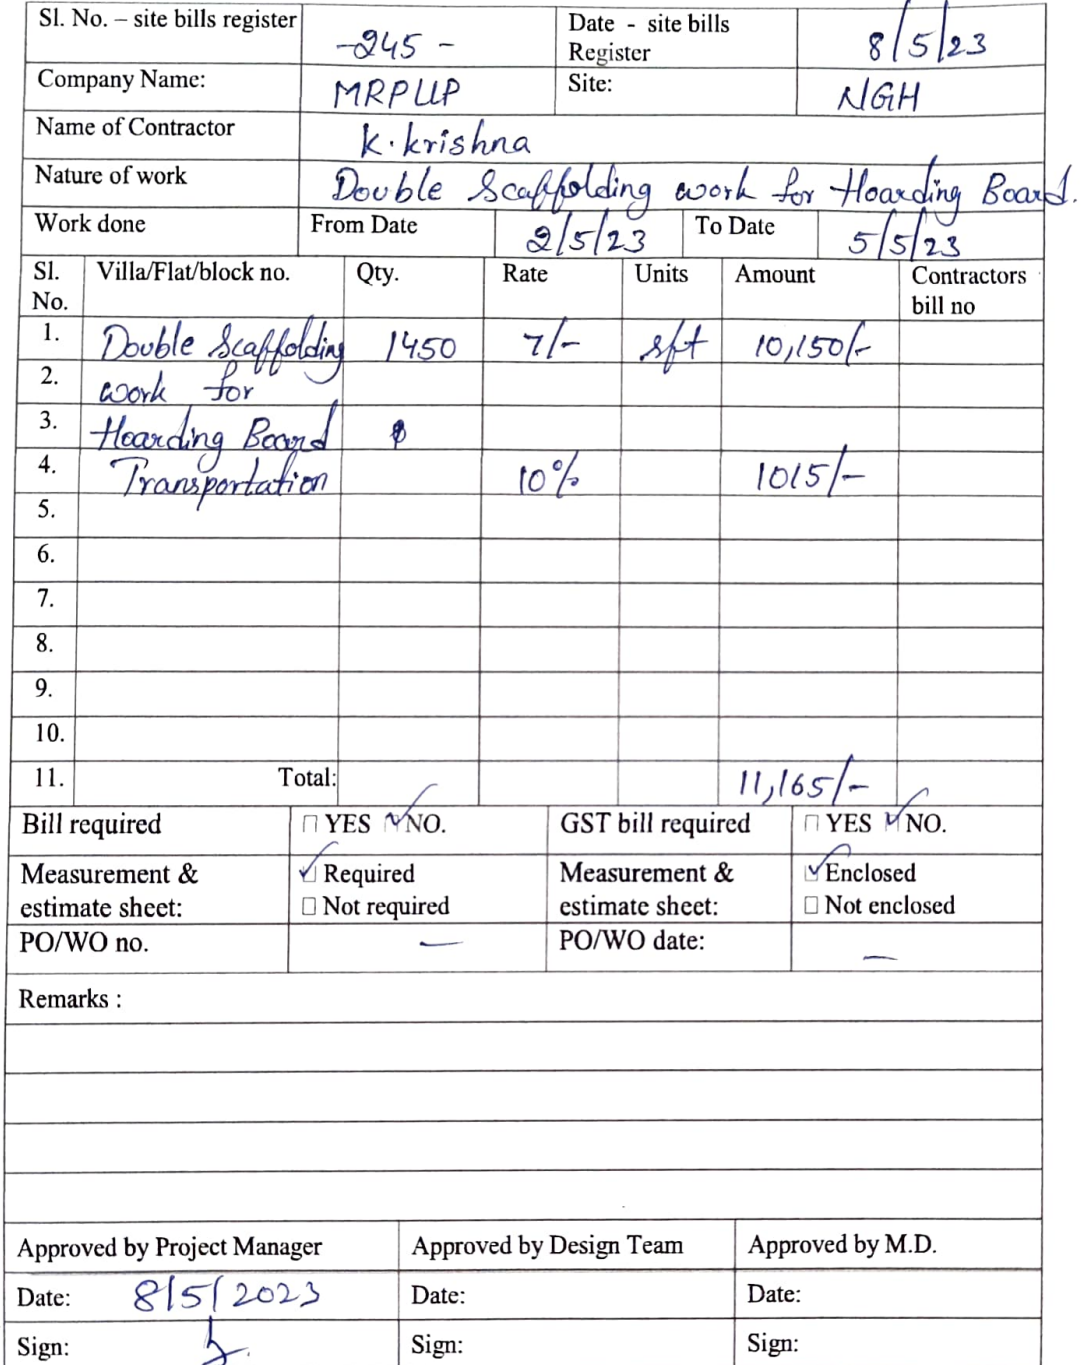 Sl. No. – site bills register -245- Date - site bills Register 8/5/23
Company Name: MRPLLP Site: NGH
Name of Contractor K. Krishna
Nature of work Double Scaffolding work for Hoarding Board.
Work done From Date 2/5/23 To Date 5/5/23
Sl. No. Villa/Flat/block no. Qty. Rate Units Amount Contractors bill no
1. Double Scaffolding 1450 7/- sft 10,150/-
2. work for
3. Hoarding Board
4. Transportation 10% 1015/-
5.
6.
7.
8.
9.
10.
11. Total: 11,165/-
Bill required ☐ YES ☑ NO. GST bill required ☐ YES ☑ NO.
Measurement & estimate sheet: ☑ Required ☐ Not required Measurement & estimate sheet: ☑ Enclosed ☐ Not enclosed
PO/WO no. — PO/WO date: —
Remarks :
Approved by Project Manager Approved by Design Team Approved by M.D.
Date: 8/5/2023 Date: Date:
Sign: Sign: Sign: